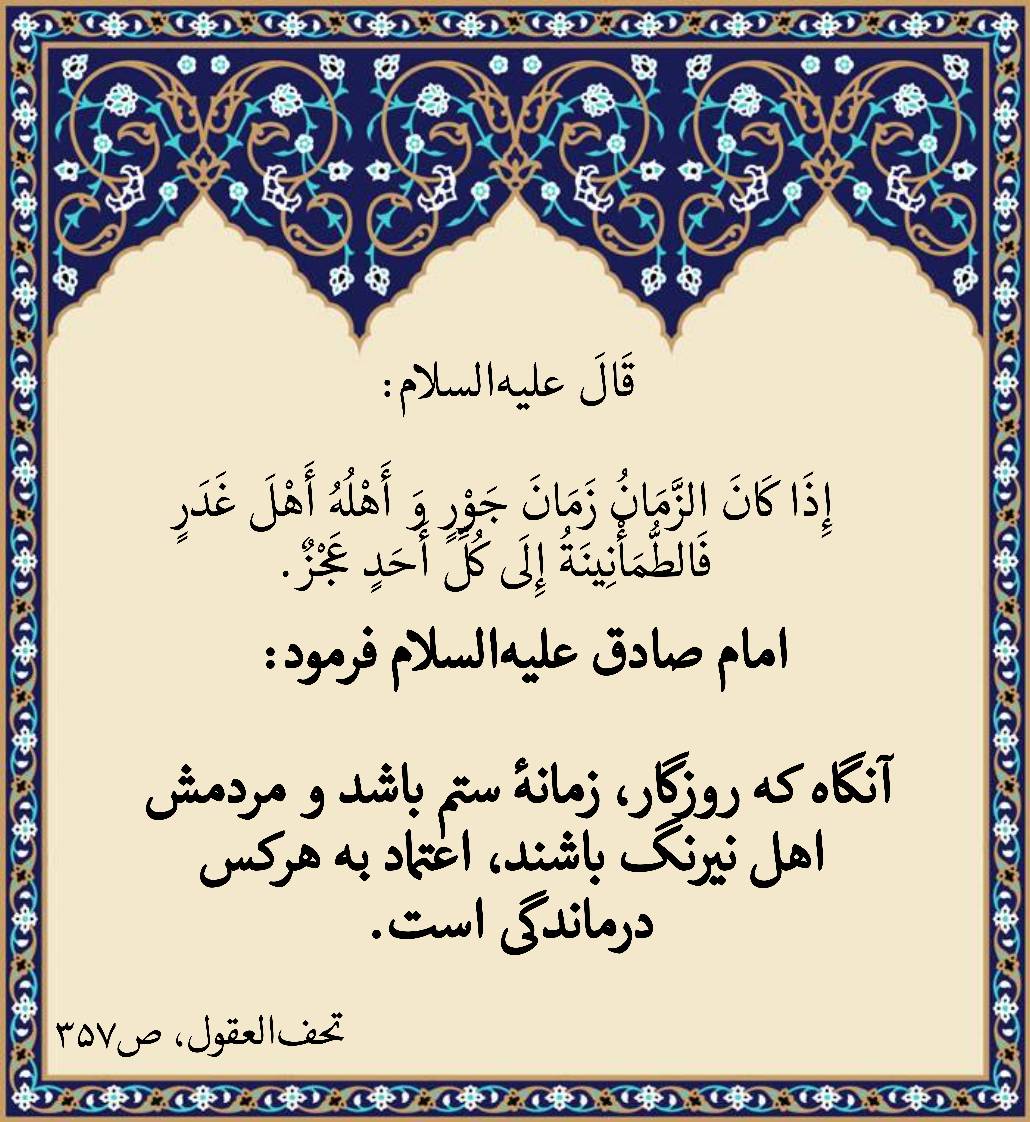 قَالَ علیه‌السلام:
إِذَا كَانَ الزَّمَانُ زَمَانَ جَوْرٍ وَ أَهْلُهُ أَهْلَ غَدَرٍ
فَالطُّمَأْنِينَةُ إِلَى كُلِّ أَحَدٍ عَجْزٌ.
امام صادق علیه‌السلام فرمود:
آنگاه که روزگار، زمانهٔ ستم باشد و مردمش
اهل نیرنگ باشند، اعتماد به هرکس
درماندگی است.
تحف‌العقول، ص۳۵۷